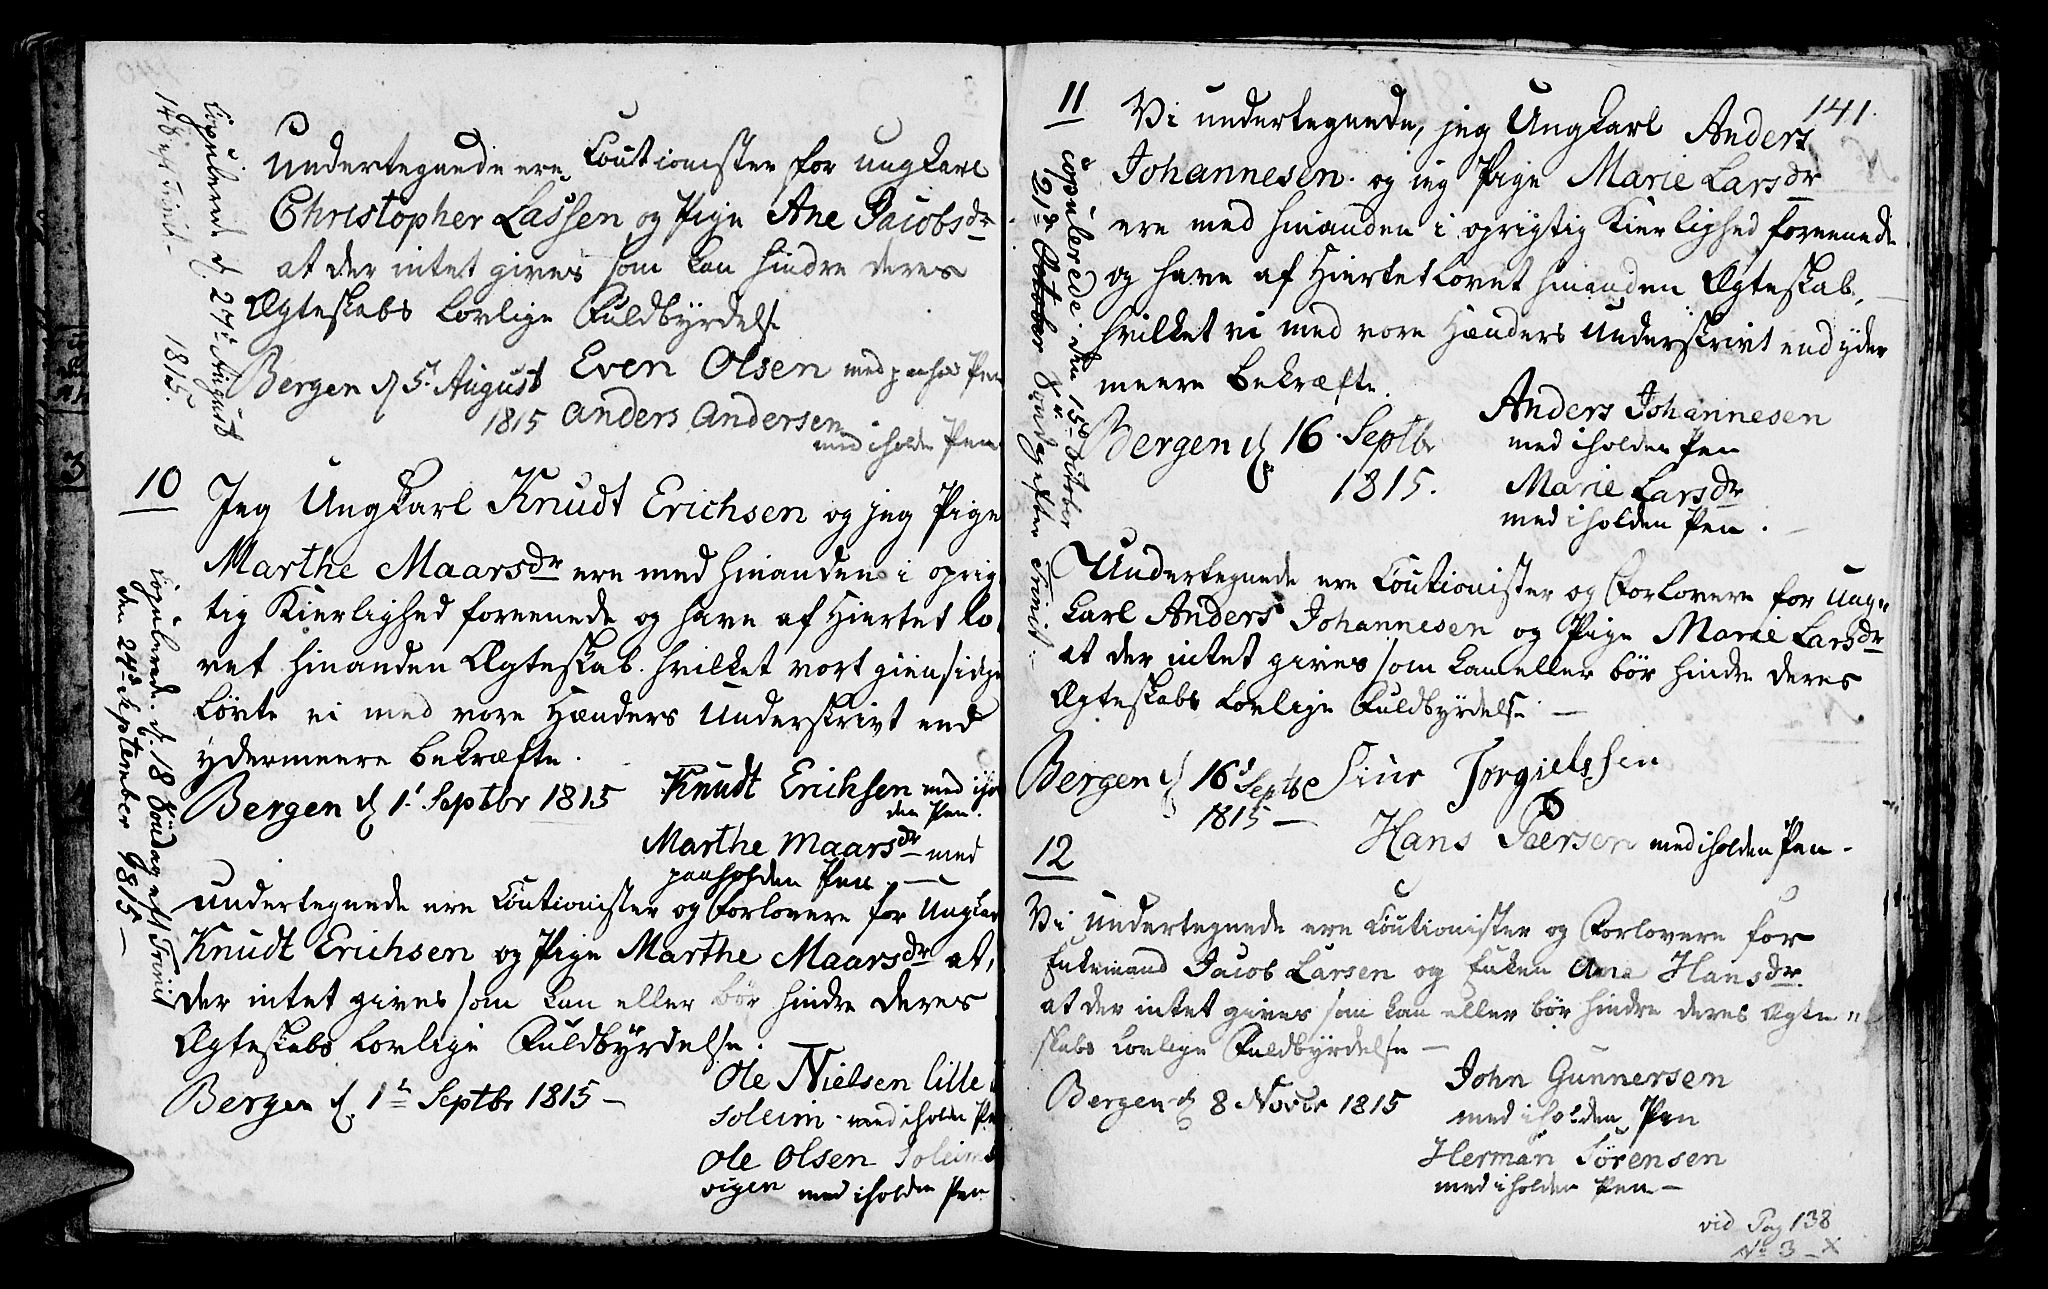 Copulerede d. 27de August
14de eft Trinit. 1815.
Undertegnede ere Coutionister for ungkarl
Christopher Lassen og Pige Ane Jacobsdr
at der intet gives som kan hindre deres
Ægteskabs Lovlige Fuldbyrdelse
Bergen d 5t August Even Olsen med paahol Pen
1815 Anders Andersen
med iholden Pen
10
Jeg UngKarl Knudt Erichsen og jeg Pige
Marthe Maarsdr ere med hinanden i oprig
tig Kierlighed foreenede og have af Hiertet lo
vet hinanden Ægteskab. hvilket vort giensidige
Løvte vi med vore Hænders Underskrivt end
ydermeere bekræfte.
Bergen d 1t Septbr 1815 Knudt Erichsen med ihol
den Pen.
Marthe Maarsdr med
paaholden Pen.
Copulerede d. 18 Søndag eft Trinit
den 24de September 1815 —
undertegnede ere Coutionister og Forlovere for Ungkar
Knudt Erichsen og Pige Marthe Maarsdr at,
der intet gives som kan eller bør hindre deres
Ægteskabs Lovlige Fuldbyrdelse.
Bergen d. 1t Septbr 1815 — Ole Nielsen lille
Soleim. med iholden Pen
Ole Olsen Soleims
vigen med iholden Pen
141.
11
Vi undertegnede, jeg UngKarl Anders
Johannesen. og jeg Pige Marie Larsdr
ere med hinanden i oprigtig Kierlighed foreenede
og have af Hiertet Lovet hinanden Ægteskab,
hvilket vi med vore Hænders Underskrivt end yder
meere bekræfte.
Bergen d 16. Septbr 1815. Anders Johannesen
med iholden Pen
Marie Larsdr
med iholden Pen.
Copulerede den 15de Octobr
21de October Søndag efter Trinit:
Undertegnede ere Coutionister og Forlovere for Ung"
Karl Anders Johannesen og Pige Marie Larsdr
at der intet gives som kan eller bør hindre deres
Ægteskabs Lovlige Fuldbyrdelse —
Bergen d 16d Septb Siur Torgielssen
1815 — Hans Peersen med iholden Pen.
12
Vi undertegnede ere Coutionister og Forlovere for
Enkemand Jacob Larsen og Enken Ane Hansdr.
at der intet gives som kan eller bør hindre deres Ægte"
skabs Lovlige Fuldbyrdelse —
Bergen d 8 Novbr 1815 John Gunnersen
med iholden Pen
Herman Sørensen
med iholden Pen —
vid Pag 138
No 3 — x